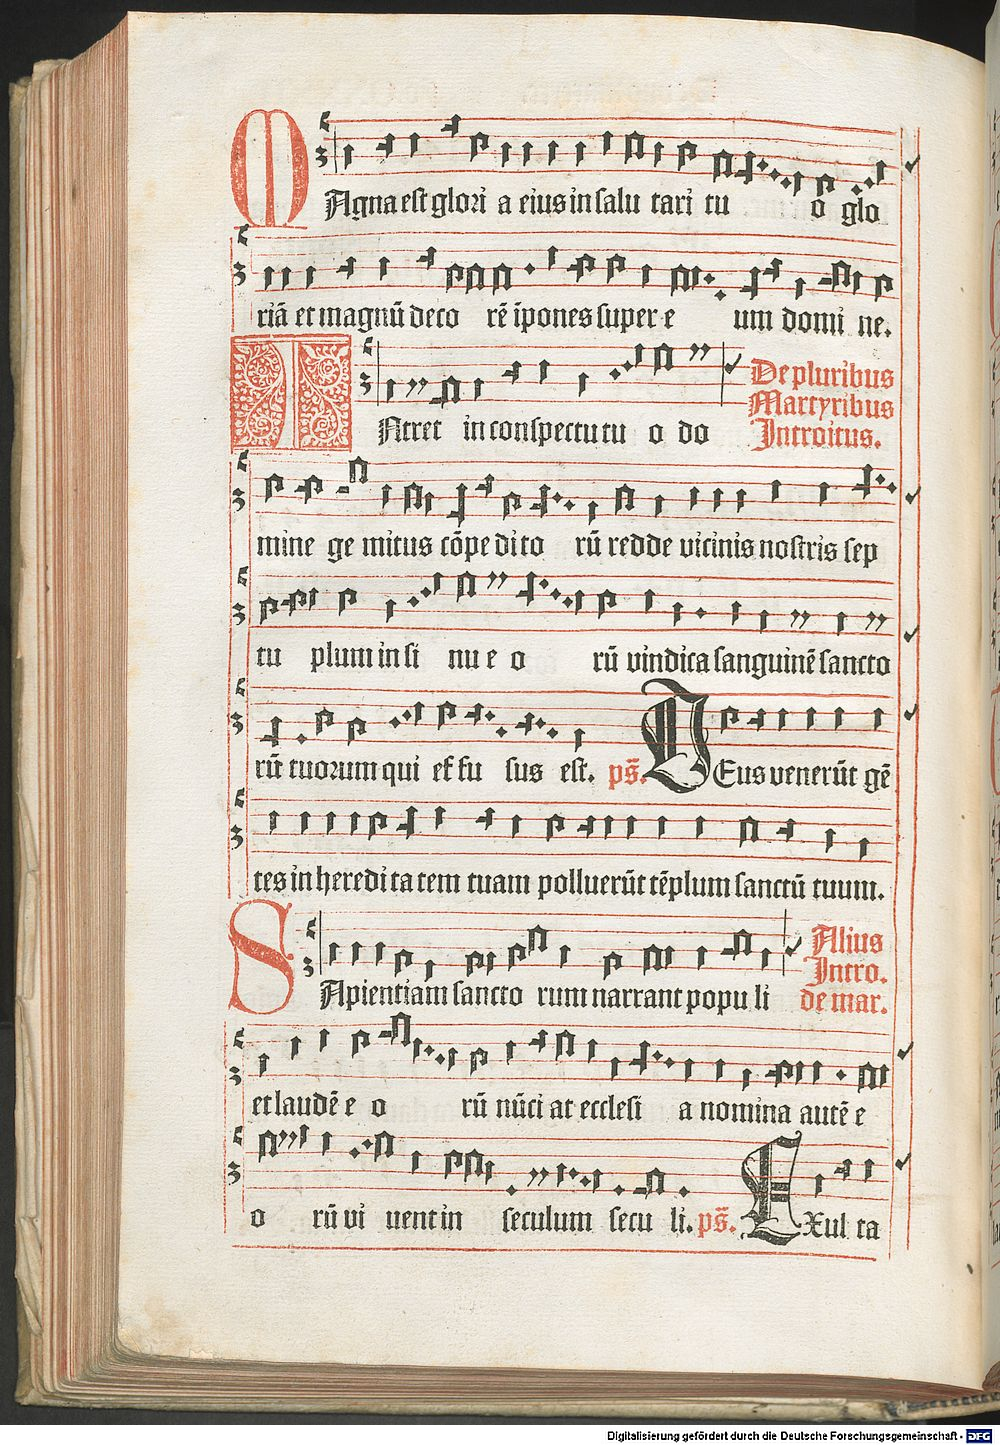 MAgna est glori a eius in salu tari tu o glo
riā et magnū deco rē īpones super e um domi ne.
De pluribus
Martyribus
Introitus.
INtret in conspectu tu o do
mine ge mitus cōpe dito rū redde vicinis nostris sep
tu plum in si nu e o rū vindica sanguinē sancto
rū tuorum qui ef fu sus est. ps̄. DEus venerūt gē
tes in heredi ta tem tuam polluerūt tēplum sanctū tuum.
Alius
Intro.
de mar.
SApientiam sancto rum narrant popu li
et laudē e o rū nūci at ecclesi a nomina autē e
o rū vi uent in seculum secu li. ps̄. EXul ta
Digitalisierung gefördert durch die Deutsche Forschungsgemeinschaft - DFG